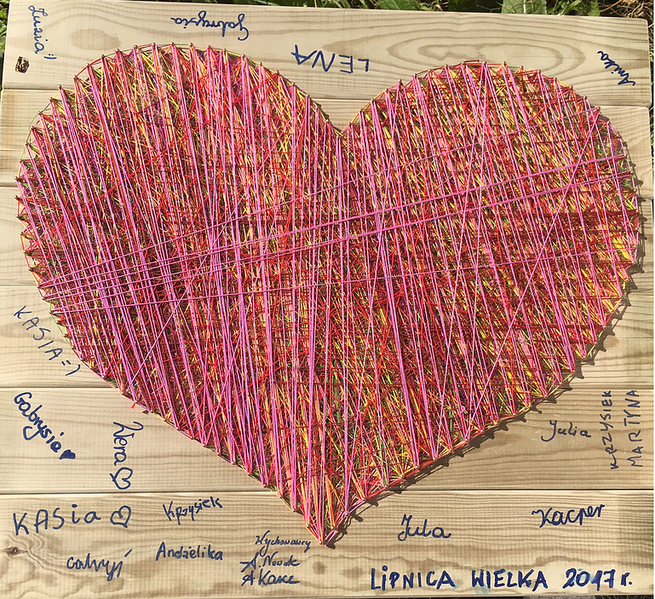 Zuzia!!
Gabrysia
LENA
Anika
KASIA =)
Gabrysia
Wera
Julia
KRZYSIEK
MARTYNA
KASia
Krzysiek
Jula
Kacper
Andżelika
Wychowawcy
A. Nowak
LiPNiCA WiELKA 2017 r.